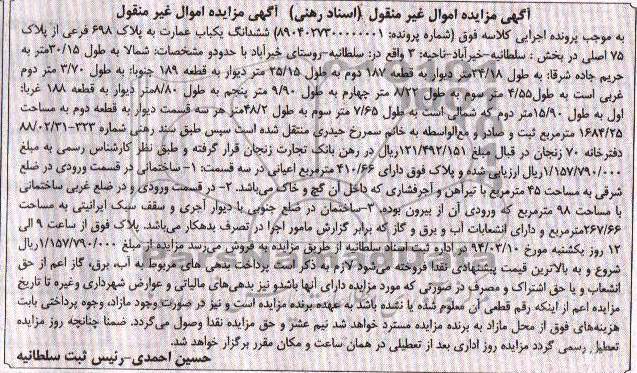 آگهی مزایده اموال غیر منقول (اسناد رهنی) آگهی مزایده اموال غیر منقول
به موجب پرونده اجرایی کلاسه فوق (شماره پرونده: ۸۹۰۴۰۲۷۳۰۰۰۰۰۰۰۱) ششدانگ یکباب عمارت به پلاک ۶۹۸ فرعی از پلاک
۷۵ اصلی در بخش : سلطانیه-خیرآباد-ناحیه: ۳ واقع در: سلطانیه-روستای خیرآباد با حدودو مشخصات: شمالا به طول ۳۰/۱۵متر به
حریم جاده شرقا: به طول ۳۴/۱۸متر دیوار به قطعه ۱۸۷ دوم به طول ۳۵/۱۵ متر دیوار به قطعه ۱۸۹ جنوبا: به طول ۳/۷۰ متر دوم
غربی است به طول۴/۵۵ متر سوم به طول ۸/۲۲ متر چهارم به طول ۹/۹۰ متر پنجم به طول ۸/۸۰متر دیوار به قطعه ۱۸۸ غربا:
اول به طول ۱۵/۹۰متر دوم که شمالی است به طول ۷/۶۵ متر سوم به طول ۴۸/۲متر هر سه قسمت دیوار به قطعه دوم به مساحت
۱۶۸۴/۲۵ مترمربع ثبت و صادر و مع‌الواسطه به خانم سمرخ حیدری منتقل شده است سپس طبق سند رهنی شماره ۳۳۳-۸۸/۰۲/۳۱
دفترخانه ۷۰ زنجان در قبال مبلغ ۱۳۱/۴۹۲/۱۵۱ریال در رهن بانک تجارت زنجان قرار گرفته و طبق نظر کارشناس رسمی به مبلغ
۱/۱۵۷/۷۹۰/۰۰۰ریال ارزیابی شده و پلاک فوق دارای ۴۱۰/۶۶ مترمربع اعیانی در سه قسمت: ۱- ساختمانی در قسمت ورودی در ضلع
شرقی به مساحت ۴۵ مترمربع با تیرآهن و آجرفشاری که داخل آن گچ و خاک می‌باشد. ۲- در قسمت ورودی و در ضلع غربی ساختمانی
با مساحت ۹۸ مترمربع که ورودی آن از بیرون بوده. ۳-ساختمان در ضلع جنوبی با دیوار آجری و سقف سبک ایرانیتی به مساحت
۲۶۷/۶۶مترمربع و دارای انشعابات آب و برق و گاز که برابر گزارش مامور اجرا در تصرف بدهکار می‌باشد. پلاک فوق از ساعت ۹ الی
۱۲ روز یکشنبه مورخ ۹۴/۰۳/۱۰ در اداره ثبت اسناد سلطانیه از طریق مزایده به فروش می‌رسد مزایده از مبلغ ۱/۱۵۷/۷۹۰/۰۰۰ریال
شروع و به بالاترین قیمت پیشنهادی نقدا فروخته می‌شود لازم به ذکر است پرداخت بدهی های مربوط به آب، برق، گاز اعم از حق
انشعاب و یا حق اشتراک و مصرف در صورتی که مورد مزایده دارای آنها باشدو نیز بدهی‌های مالیاتی و عوارض شهرداری وغیره تا تاریخ
مزایده اعم از اینکه رقم قطعی آن معلوم شده یا نشده باشد به عهده برنده مزایده است و نیز در صورت وجود مازاد، وجوه پرداختی بابت
هزینه‌های فوق از محل مازاد به برنده مزایده مسترد خواهد شد نیم عشر و حق مزایده نقدا وصول می‌گردد. ضمنا چنانچه روز مزایده
تعطیل رسمی گردد مزایده روز اداری بعد از تعطیلی در همان ساعت و مکان مقرر برگزار خواهد شد.
حسین احمدی-رئیس ثبت سلطانیه